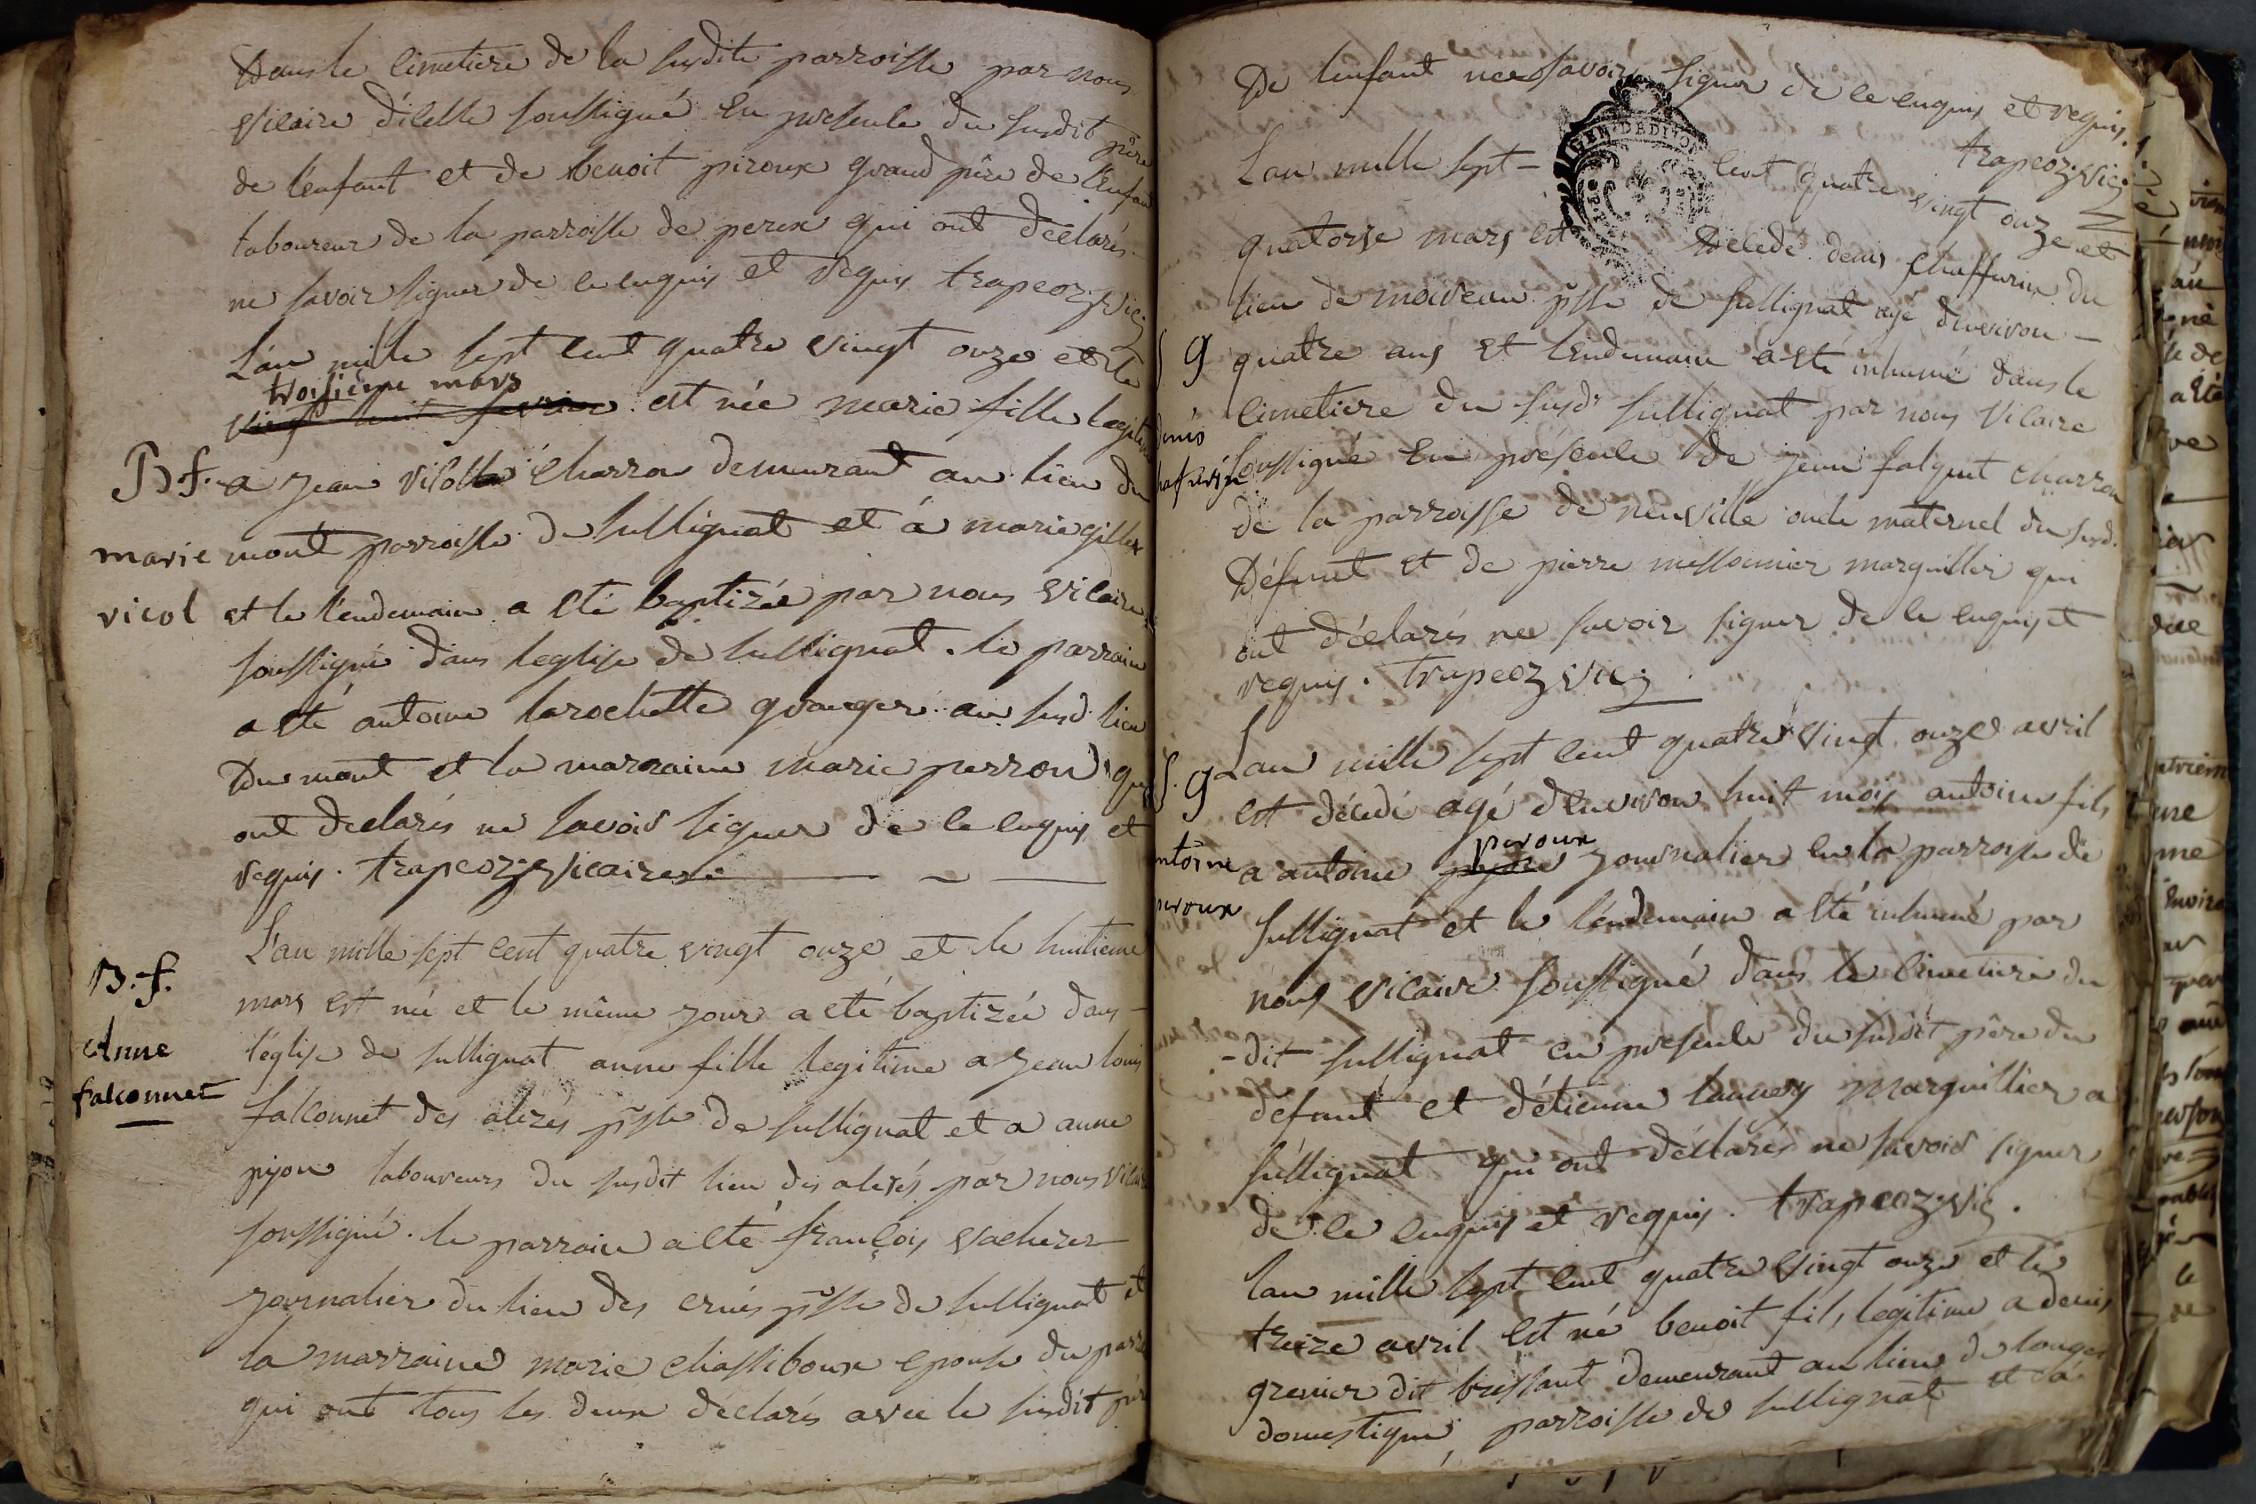 Dans le cimetiere de la susdite parroisse par nous
vicaire d'icelle soussigné en presence du susdit père
de l'enfant et de benoit piroux grand père de l'enfan
laboureur de la parroisse de perex qui ont déclarés
ne savoir signer de ce enquis et requis trapeoz vic
L'an mille sept cent quatre vingt onze et le
troisieme mars
est née marie fille legiti
B f.
a jean vicol charron demeurant au lieu du
marie
mont parroisse de sullignat et à marie gillet
vicol
et le l'endemain a été baptizée par nous vicaire
soussigné dans l'eglise de sullignat. le parrain
a été antoine larochette granger au susd lieu
Du mont et la marraine marie perron qui
ont declarés ne savoir signer de ce enquis et
requis. trapeoz vicaire
L'an mille sept cent quatre vingt onze et le huitieme
B. f.
mars est née et le même jour a été baptizée dans
Anne
l'église de sullignat anne fille legitime a jean louis
falconnet
falconnet des alezés psse de sullignat et a anne
pijon laboureurs du susdit lieu des alezés par nous vicai
soussigné. le parrain a été françois vacherer
journalier du lieu des crués psse de sullignat et
la marraine marie chassiboux epouse du parr
qui ont tous les deux déclarés avec le susdit pèr
De l'enfant ne savoir signer de ce enquis et requis.
trapeoz vic
L'an mille sept cent quatre vingt onze et
quatorse mars est Decedé denis chaffurin du
lieu de moiveau psse de sullignat agé d'environ
S g
quatre ans et l'endemain a été inhumé dans le
cimetiere du susd sullignat par nous vicaire
denis
soussigné en présence de jean falquet charron
de la parroisse de neuville oncle maternel du susd.
Défunt et de pierre messonnier marguiller qui
ont déclarés ne savoir signer de ce enquis et
requis. trapeoz vic
L'an mille sept cent quatre vingt onze avril
S. g
est décédé agé d'environ huit mois antoine fils
piroux
antoine
a antoine journalier en la parroisse de
piroux
sullignat et le l'endemain a été inhumé par
nous vicaire soussigné dans le cimetiere du
-dit sullignat en presence du susdit père du
défunt et d'étienne marguillier a
sullignat qui ont déclarés ne savoir signer
de ce enquis et requis. trapeoz vic.
l'an mille sept cent quatre vingt onze et le
treize avril est né benoit fils legitime a denis
grenier dit brissant demeurant au lieu de longe
domestique, parroisse de sullignat et à